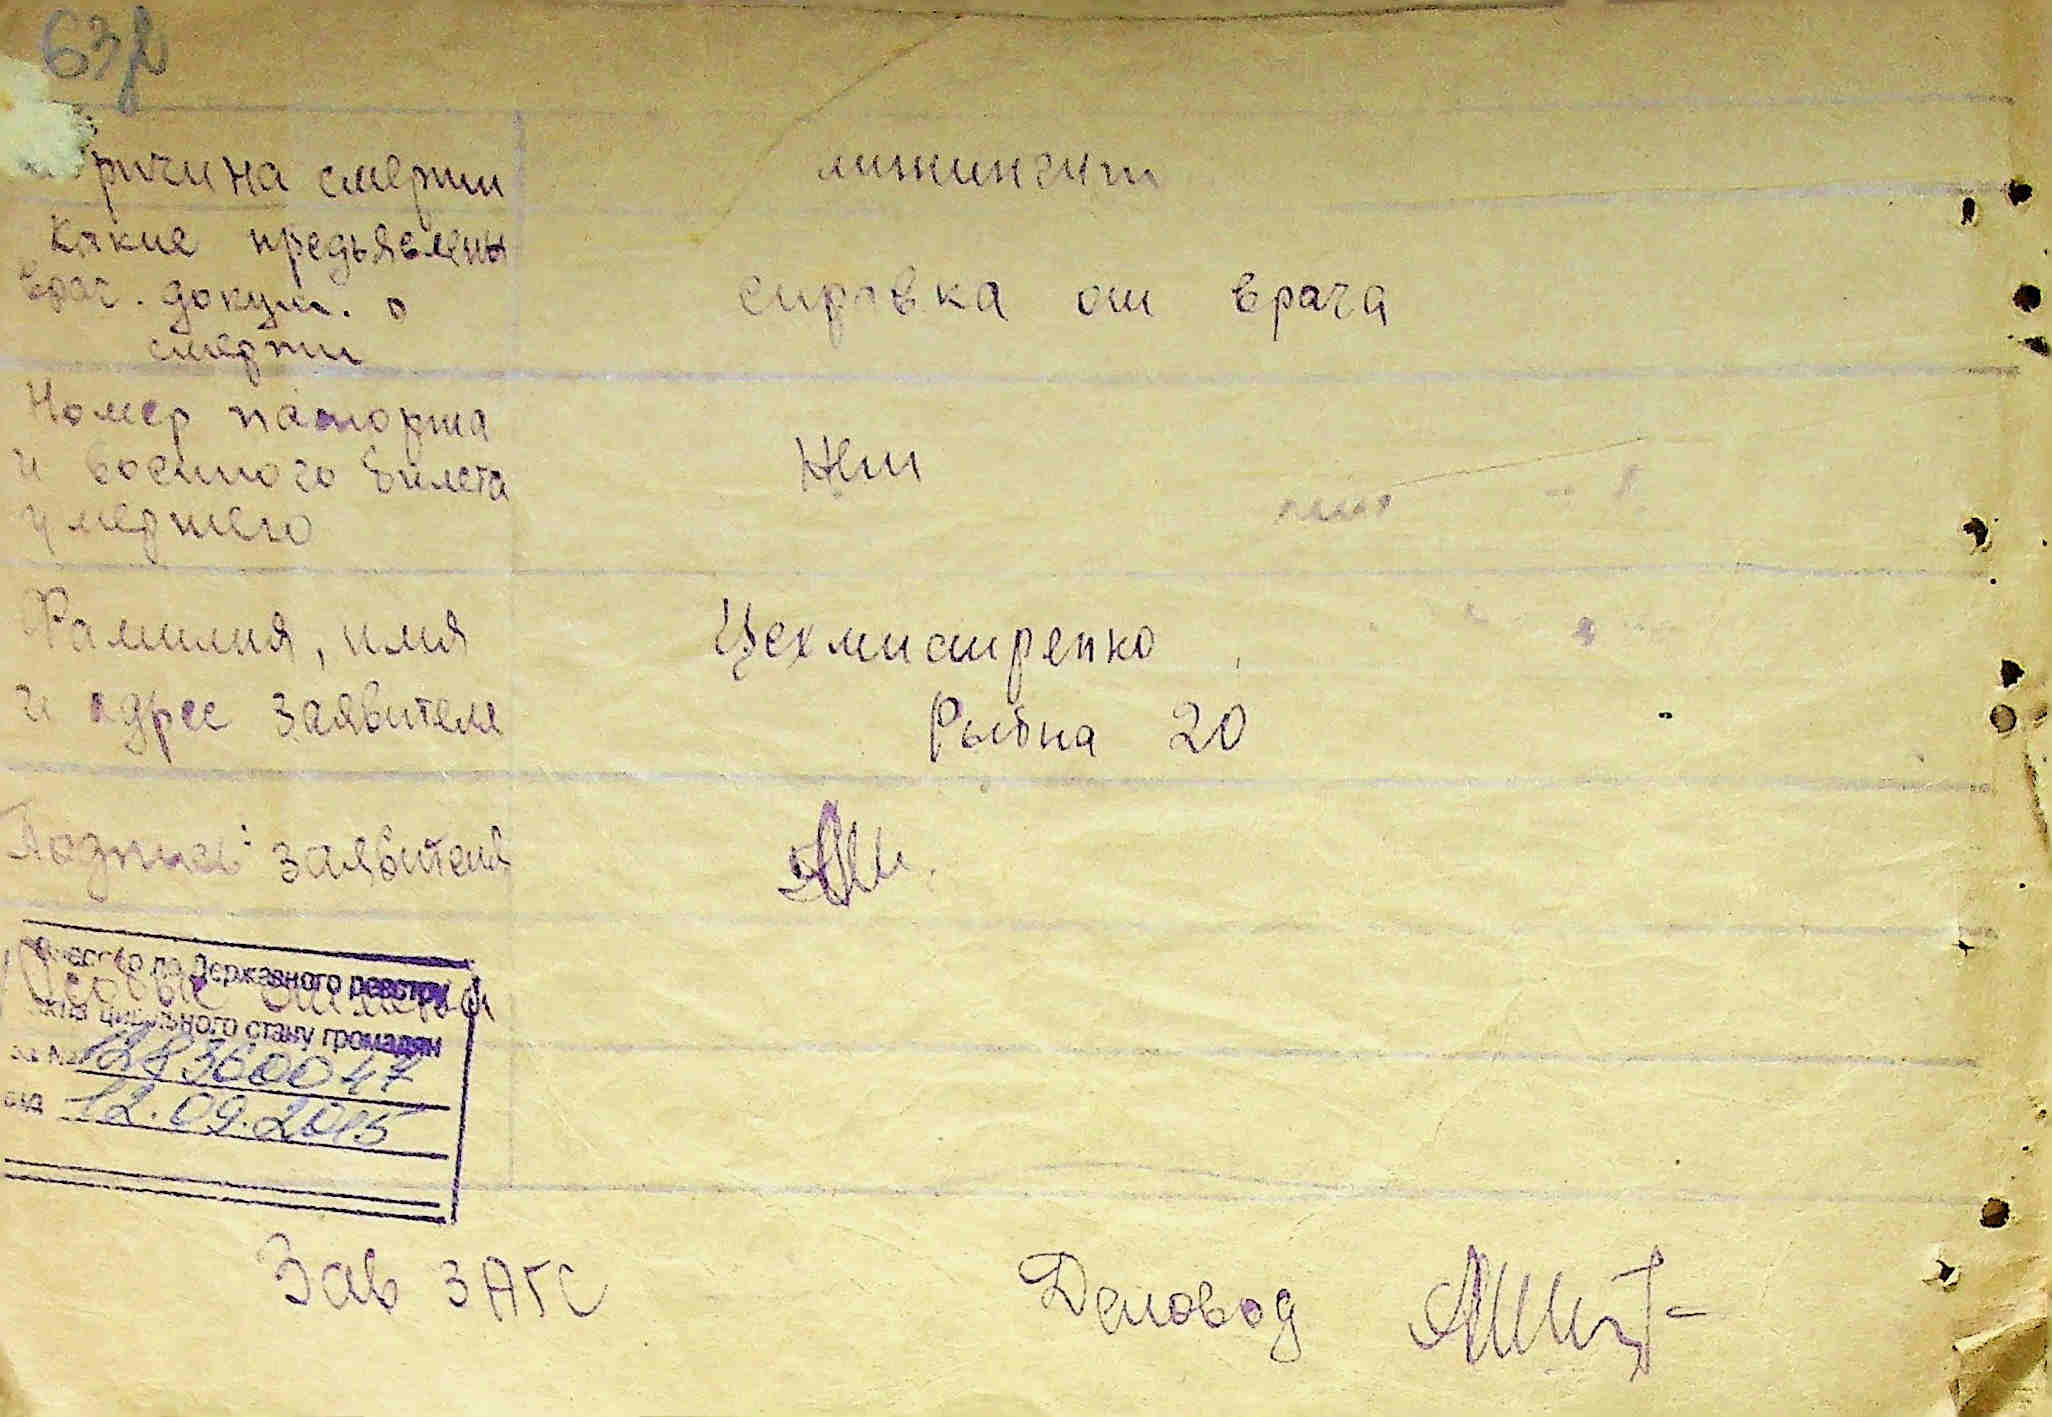 632
Причина смерти менингит
Какие предъявлены
врач. докум. о справка от врача
смерти
Номер паспорта
и военного билета Нет
умершего
Фамилия, имя Цехмистренко
и адрес заявителя Рыбна 20
Подпись заявителя
Внесено до Державного реєстру
Особые отметки
актів цивільного стану громадян
за № 1283600047
від 12.09.2015
Зав ЗАГС Деловод